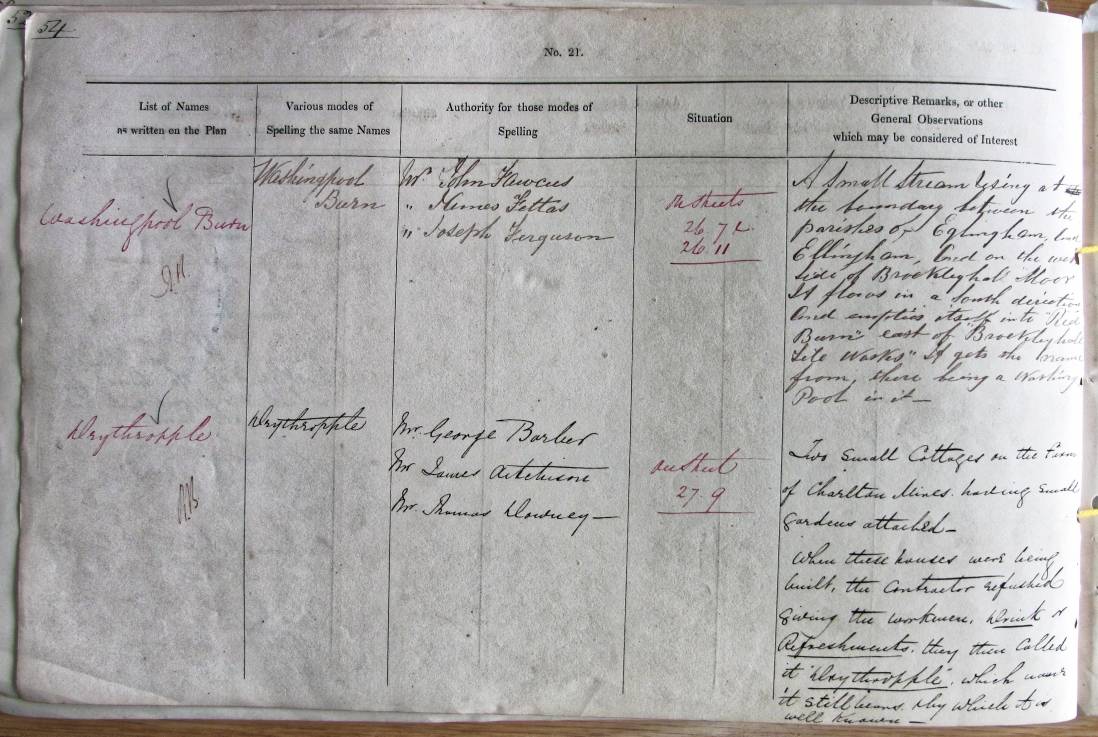 54
No. 21.
List of Names
as written on the Plan
Various modes of
Spelling the same Names
Authority for those modes of
Spelling
Situation
Descriptive Remarks, or other
General Observations
which may be considered of Interest
Washingpool Burn
Washingpool
Burn
Mr. John
" James Fettas
" Joseph Ferguson
On Sheets
26 7
26 11
A Small Stream rising at
the boundary between the
parishes of Eglingham, and
Ellingham, And on the west
side of Brockleyhall Moor
It flows in a South direction
And empties itself into "Red
Burn" east of "Brockleyhall
Tile Works" It gets the name
from, there being a Washing
Pool in it —
Drythropple
Drythropple
Mr. George Barber
Mr James Aitchison
Mr. Thomas Downey —
On Sheet
27 9
Two Small Cottages on the Farm
of Charlton Mires. having small
gardens attached —
When these houses were being
built, the Contractor refushed
giving the workmen, Drink or
Refreshments. they then Called
it "Drythropple", which name
it still bears. & by which it is
well known —